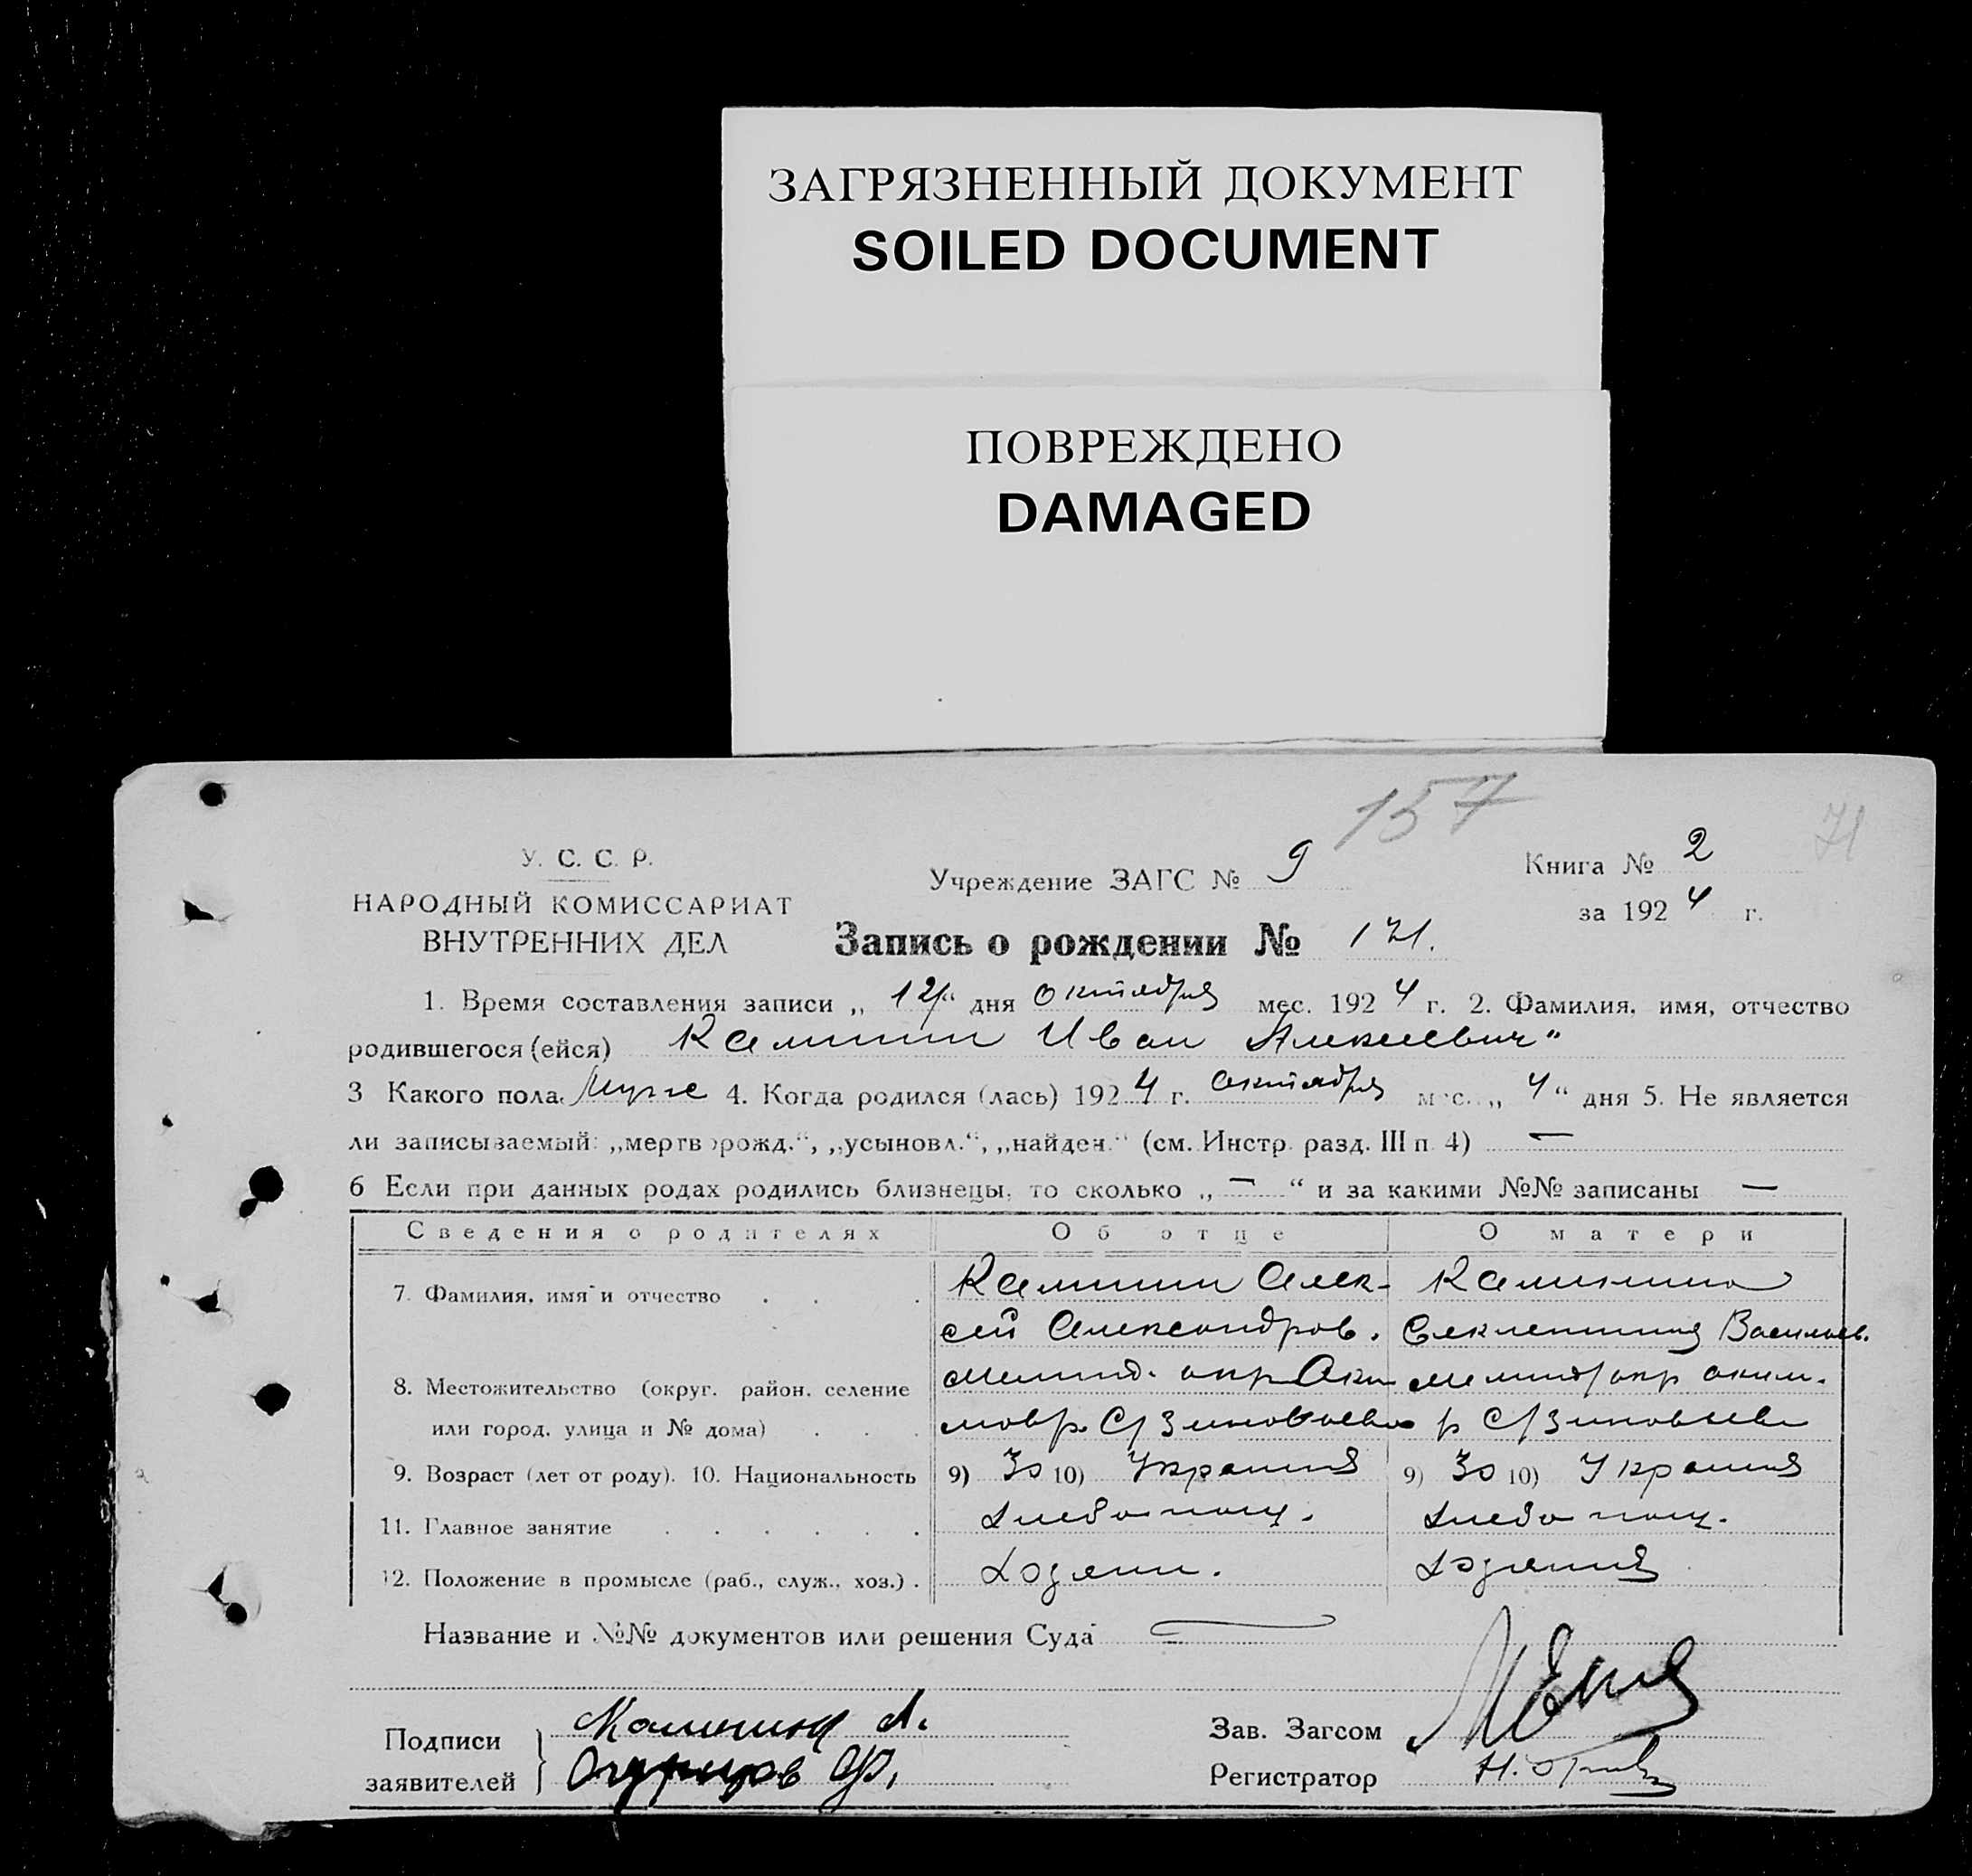 ЗАГРЯЗНЕННЫЙ ДОКУМЕНТ
SOILED DOCUMENT
ПОВРЕЖДЕНО
DAMAGED
157
71
У. С. С. Р.
НАРОДНЫЙ КОМИССАРИАТ
ВНУТРЕННИХ ДЕЛ
Учреждение ЗАГС № 9
Книга № 2
за 1924 г.
Запись о рождении № 171.
1. Время составления записи „12“ дня октября мес. 1924 г. 2. Фамилия, имя, отчество
родившегося (ейся) Калинин Иван Алексеевич"
3 Какого пола. Муже 4. Когда родился (лась) 1924 г. октября мес. „4“ дня 5. Не является
ли записываемый: „мертворожд.“, „усыновл.“, „найден.“ (см. Инстр. разд. III п. 4) —
6 Если при данных родах родились близнецы, то сколько „—“ и за какими №№ записаны —
Сведения о родителях Об отце О матери
7. Фамилия, имя и отчество Калинин Алек- Калинина
сей Александров. Секлетиния Васильев.
8. Местожительство (округ, район, селение Мелитоп. окр Аки Мелитоп окр аким.
или город, улица и № дома) мовр. С/Зиновьева р С/Зиновьева
9. Возраст (лет от роду). 10. Национальность 9) 30 10) Украиния 9) 30 10) Украиния
11. Главное занятие Хлебопащ. Хлебопащ.
12. Положение в промысле (раб., служ., хоз.) . Хозяин. Хозяиня
Название и №№ документов или решения Суда
Подписи Калинин А. Зав. Загсом
заявителей Регистратор